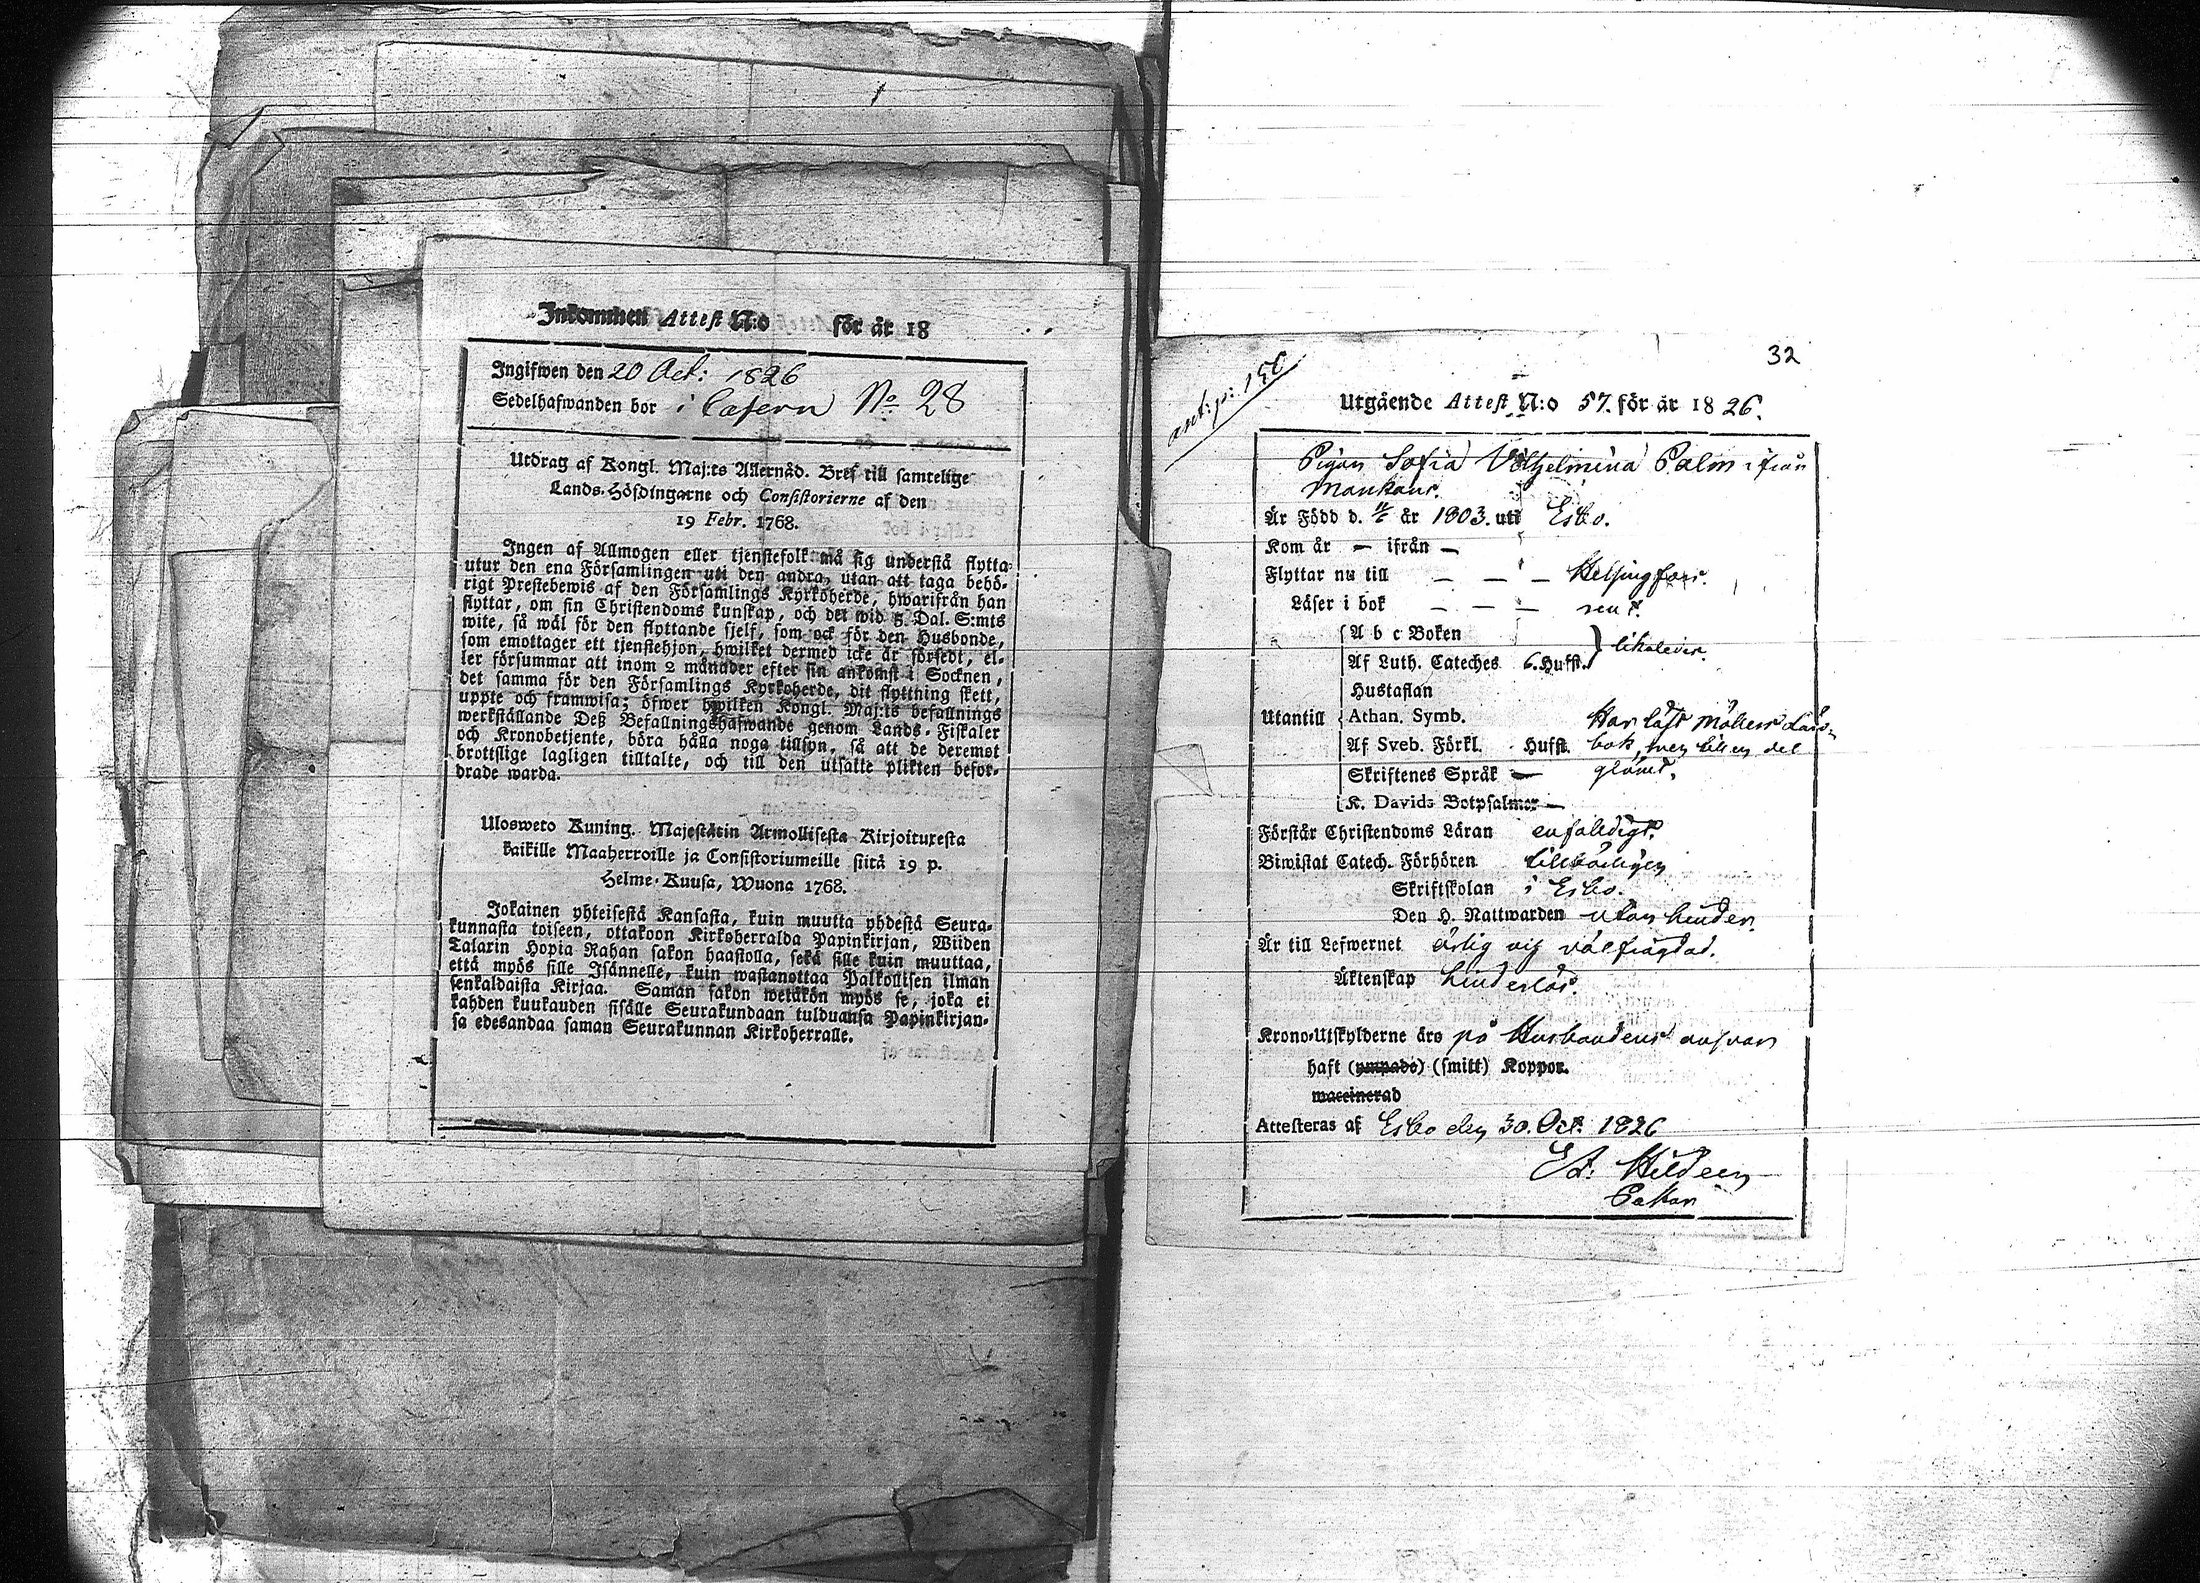 Inkommen Attest N:o för år 18
Ingifwen den 20 Oct: 1826
Sedelhafwanden bor i Casern No 28
Utdrag af Kongl. Maj:ts Allernåd. Bref till samtelige
Lands-Höfdingarne och Consistorierne af den
19 Febr. 1768.
Ingen af Allmogen eller tjenstefolk må sig understå flytta
utur den ena Församlingen uti den andra, utan att taga behö-
rigt Prestebewis af den Församlings Kyrkoherde, hwarifrån han
flyttar, om sin Christendoms kunskap, och det wid 5. Dal. S:mts
wite, så wäl för den flyttande sjelf, som ock för den Husbonde,
som emottager ett tjenstehjon, hwilket dermed icke är försedt, el-
ler försummar att inom 2 månader efter sin ankomst i Socknen,
det samma för den Församlings Kyrkoherde, dit flyttning skett,
uppte och framwisa; öfwer hwilken Kongl. Maj:ts befallnings
werkställande Deß Befallningshafwande genom Lands-Fiskaler
och Kronobetjente, böra hålla noga tillsyn, så att de deremot
brottslige lagligen tilltalte, och till den utsatte plikten befor-
drade warda.
Ulosweto Kuning. Majestätin Armollisesta Kirjoituxesta
kaikille Maaherroille ja Consistoriumeille siitä 19 p.
Helme-Kuusa, Wuona 1768.
Jokainen yhteisestä Kansasta, kuin muutta yhdestä Seura-
kunnasta toiseen, ottakoon Kirkoherralda Papinkirjan, Wiiden
Talarin Hopia Rahan sakon haastolla, sekä sille kuin muuttaa,
että myös sille Isännelle, kuin wastanottaa Palkollisen ilman
senkaldaista Kirjaa. Saman sakon wetäkön myös se, joka ei
kahden kuukauden sisälle Seurakundaan tulduansa Papinkirjan-
sa edesandaa saman Seurakunnan Kirkoherralle.
32
ant: p: 150
Utgående Attest N:o 57. för år 1826.
Pigan Sofia Vilhelmina Palm ifrån
Mankans.
Är Född d. år 1803. uti Esbo.
Kom år — ifrån —
Flyttar nu till — — — Helsingfors.
Läser i bok — — — rent.
A b c Boken
Af Luth. Cateches 6. Hufst. likaledes.
Hustaflan
Utantill Athan. Symb. Har läst Möllers Läro-
Af Sveb. Förkl. Hufst. bok, men till en del
Skriftenes Språk — glömt.
K. Davids Botpsalmer —
Förstår Christendoms Läran enfaldigt.
Biwistat Catech. Förhören tillbörligen
Skriftskolan i Esbo.
Den H. Nattwarden utan hinder.
Är till Lefwernet ärlig och välfrägdad.
Äktenskap hinderlös.
Krono-Utskylderne äro på Husbondens ansvar
haft (ympade) (smitt) Koppor.
waccinerad
Attesteras af Esbo den 30. Oct. 1826